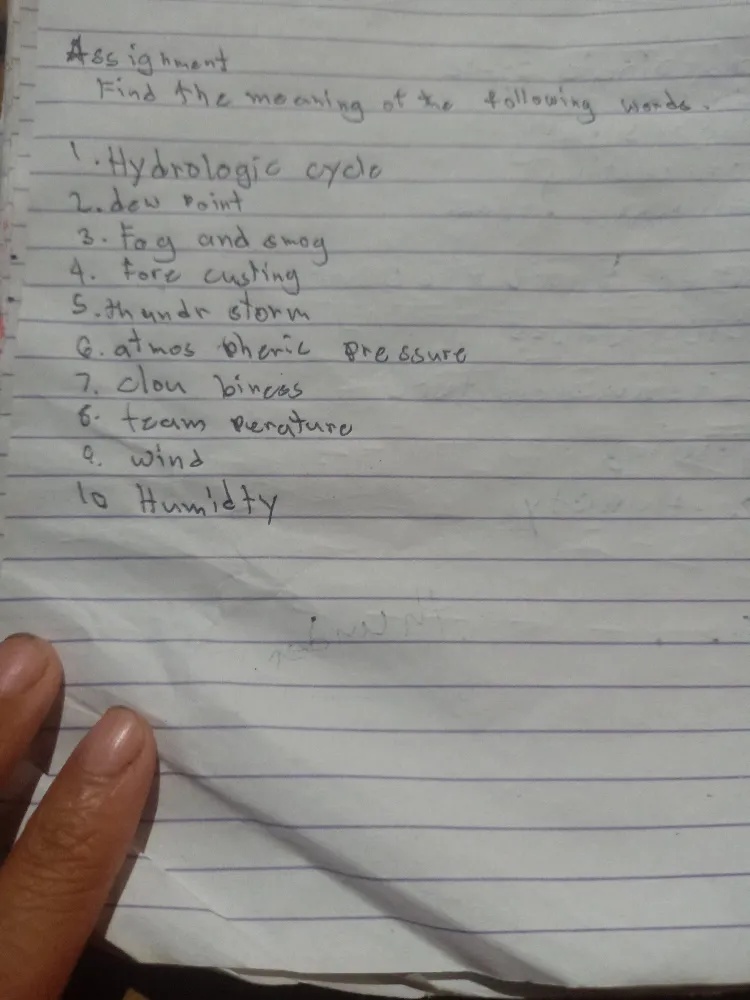 Assignment
Find the meaning of the following words.
1. Hydrologic cycle
2. dew point
3. Fog and smog
4. fore custing
5. thundr storm
6. atmos pheric pressure
7. clou biness
8. team perature
9. wind
10 Humidty